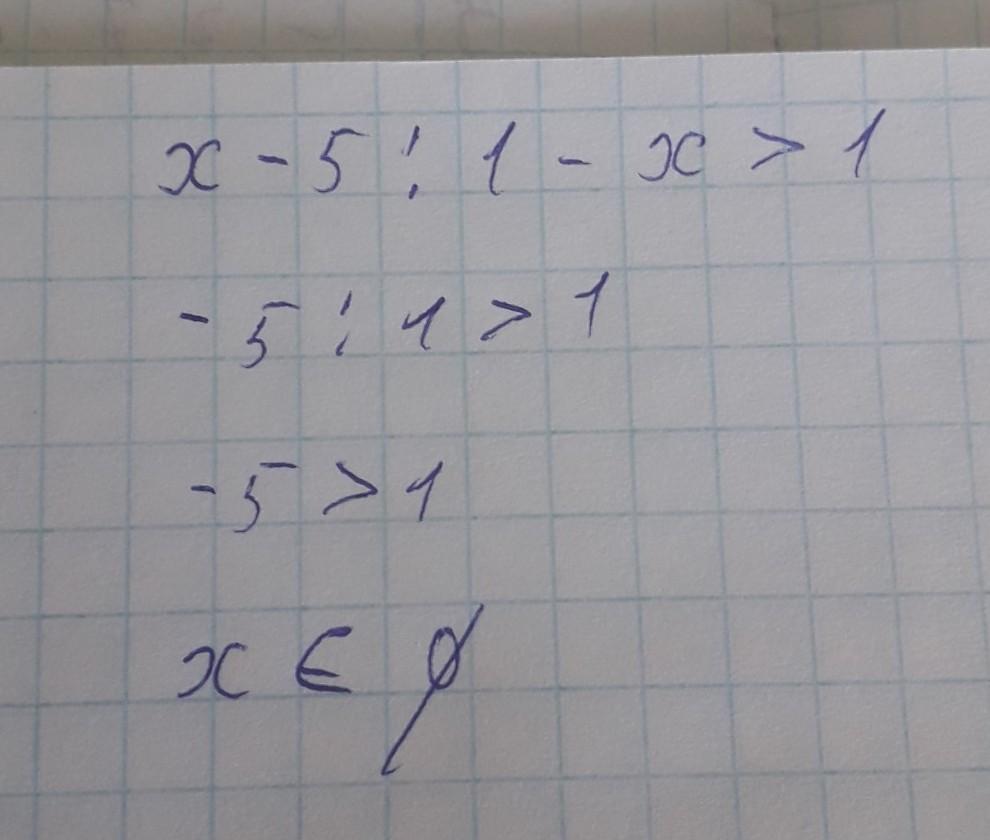 x - 5 : 1 - x > 1
- 5 : 1 > 1
- 5 > 1
x ∈ ∅